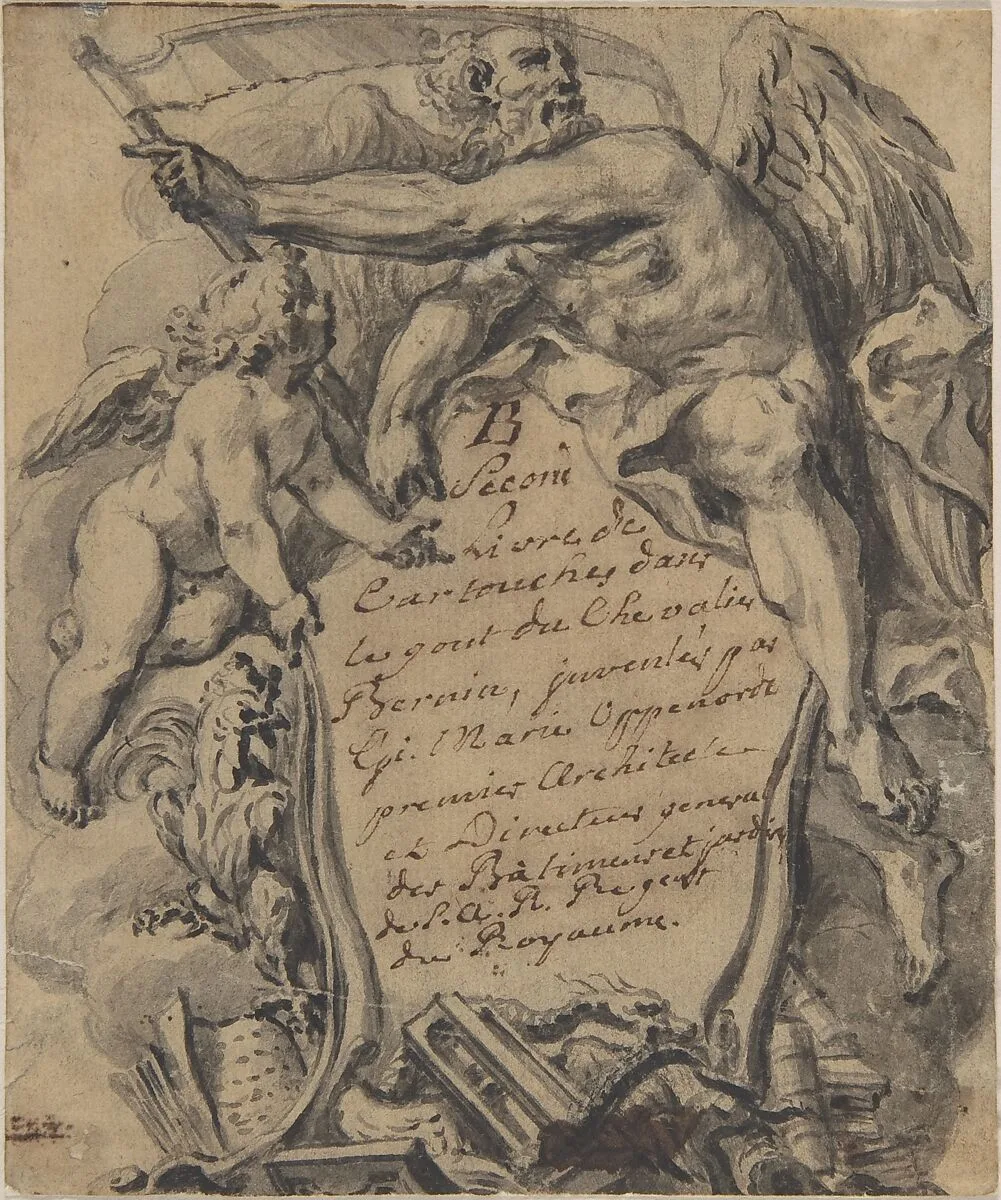 B
Second
Livre de
Cartouches dans
le gout du Chevalier
Bernin, juventés par
Gi. Marie Oppenordt
premier Architecte
et Directeur general
des Bâtimens et jardins
de S. A. R. Regent
du Royaume.